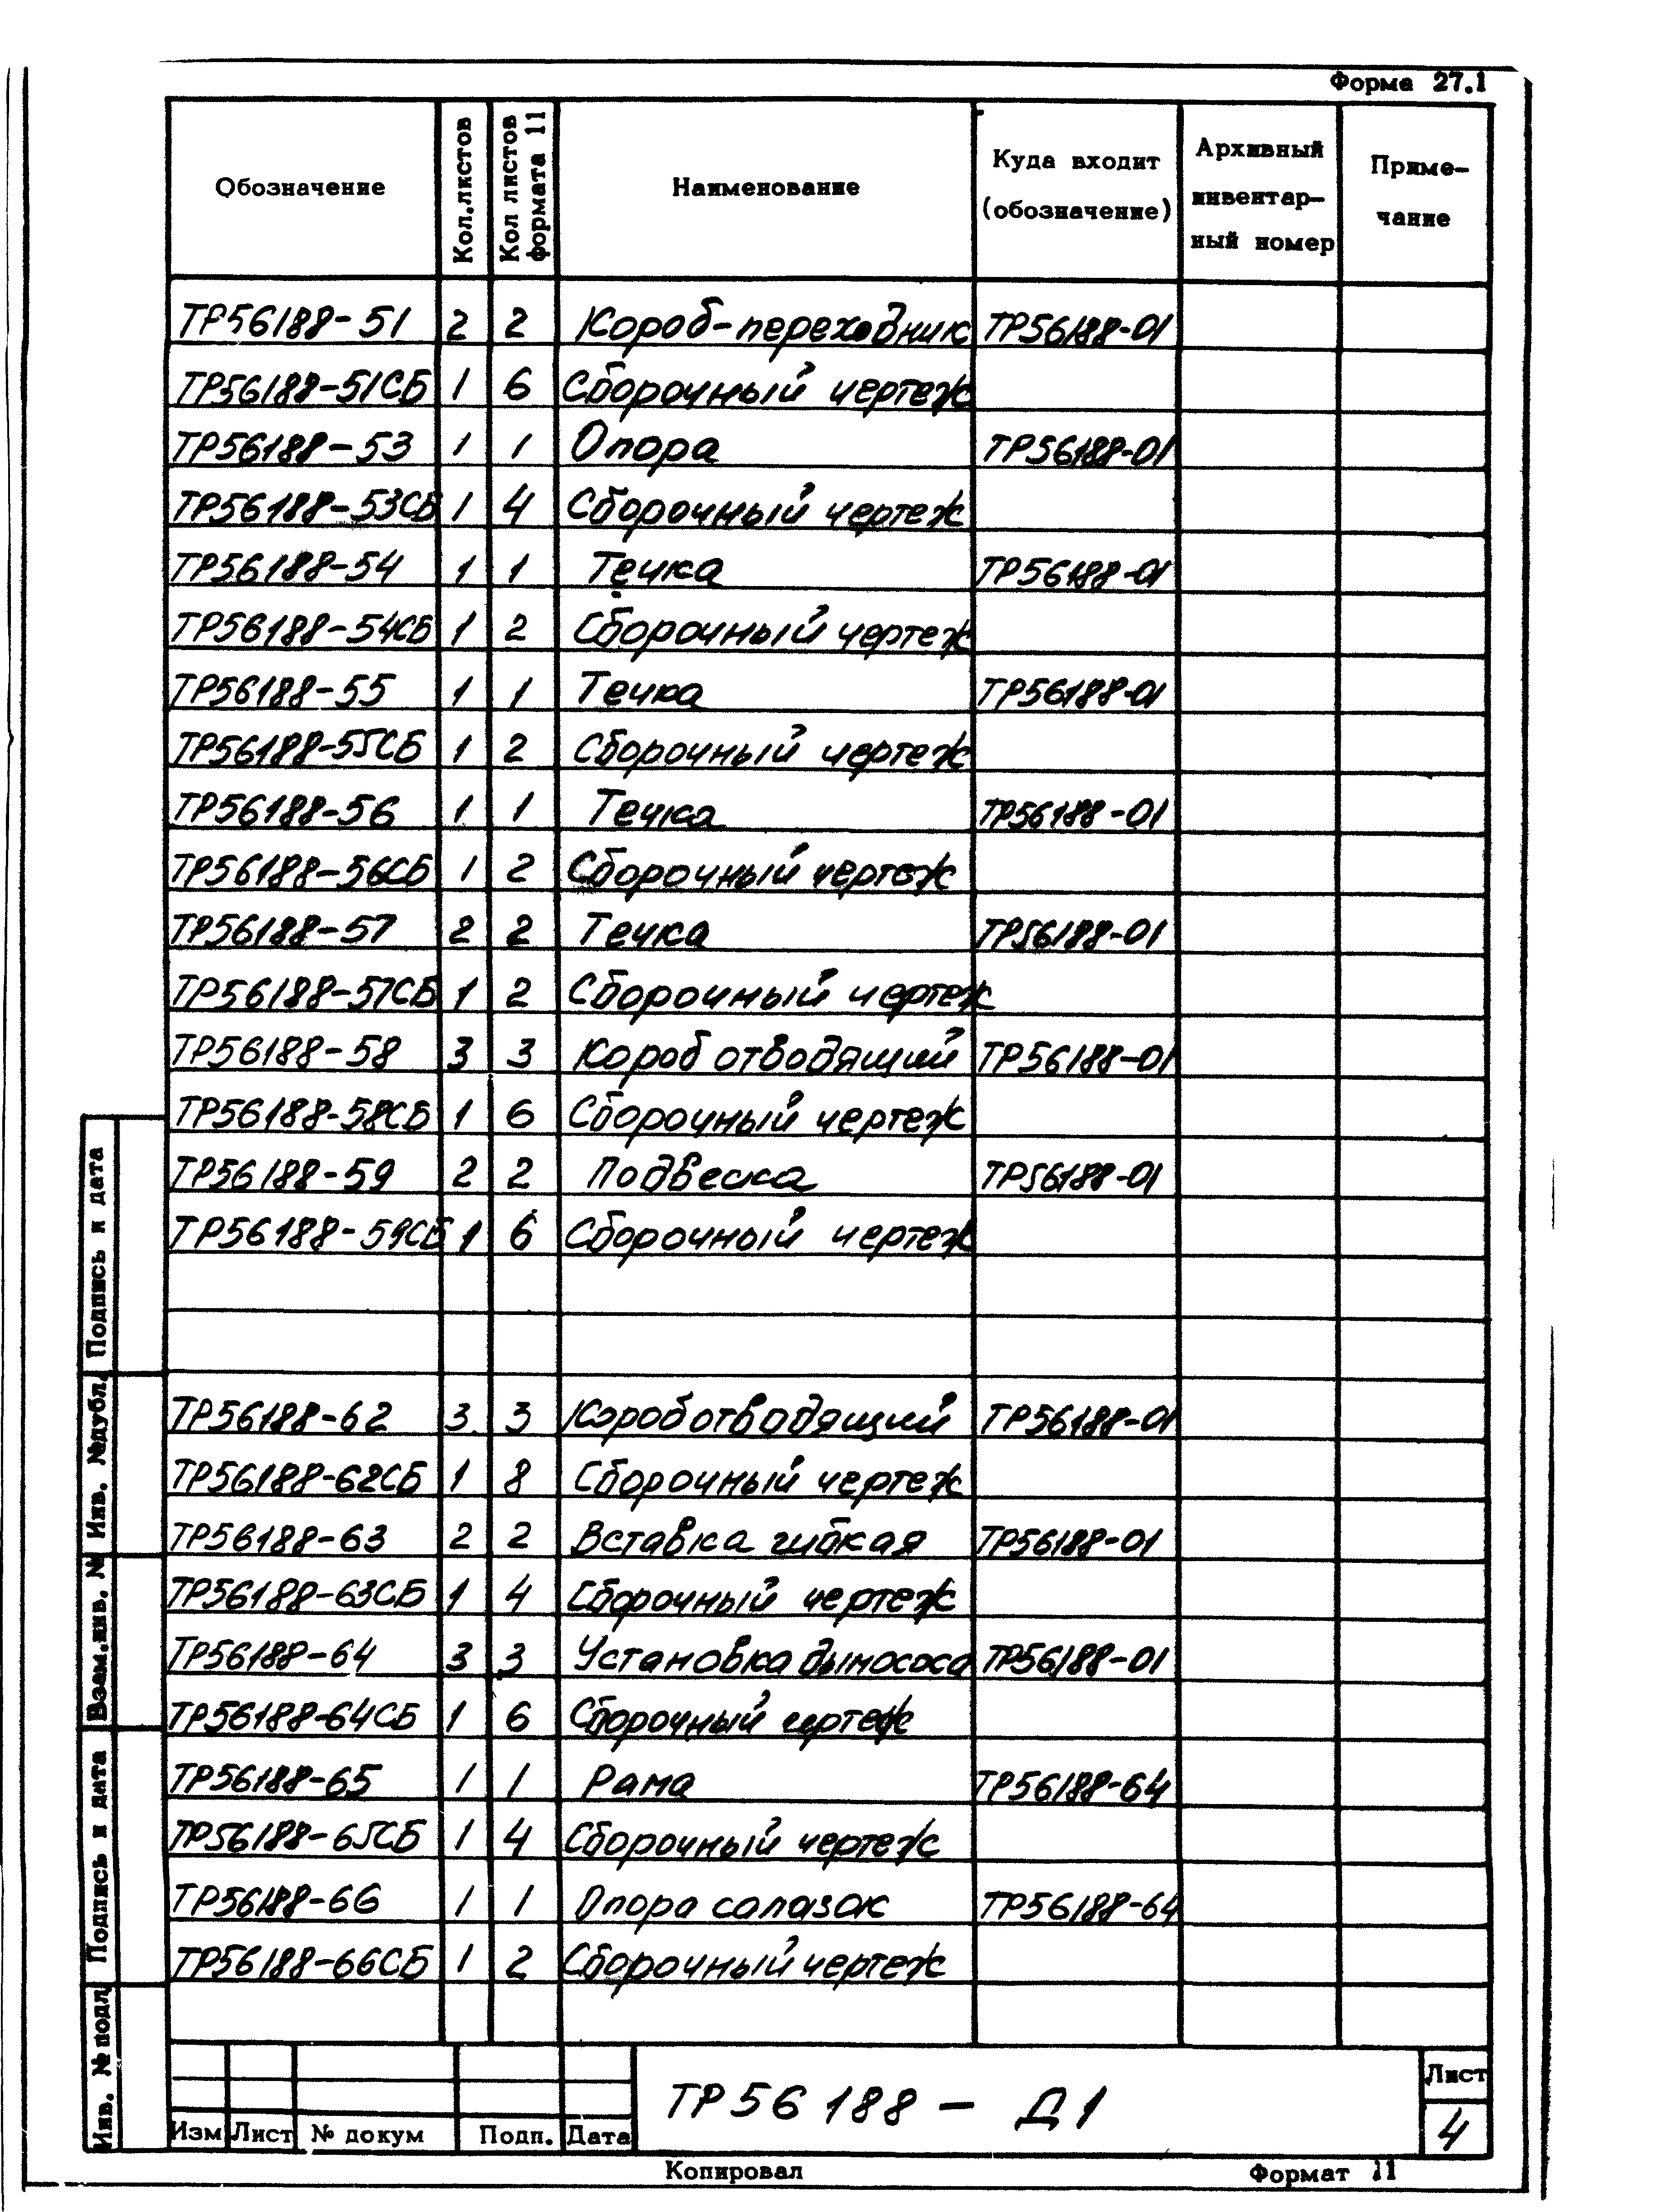 Форма 27.1
Обозначение | Кол.листов | Кол листов формата 11 | Наименование | Куда входит (обозначение) | Архивный инвентар-ный номер | Приме-чание
ТР56188-51 2 2 Короб-переходник ТР56188-01
ТР56188-51СБ 1 6 Сборочный чертеж
ТР56188-53 1 1 Опора ТР56188-01
ТР56188-53СБ 1 4 Сборочный чертеж
ТР56188-54 1 1 Течка ТР56188-01
ТР56188-54СБ 1 2 Сборочный чертеж
ТР56188-55 1 1 Течка ТР56188-01
ТР56188-55СБ 1 2 Сборочный чертеж
ТР56188-56 1 1 Течка ТР56188-01
ТР56188-56СБ 1 2 Сборочный чертеж
ТР56188-57 2 2 Течка ТР56188-01
ТР56188-57СБ 1 2 Сборочный чертеж
ТР56188-58 3 3 Короб отводящий ТР56188-01
ТР56188-58СБ 1 6 Сборочный чертеж
ТР56188-59 2 2 Подвеска ТР56188-01
ТР56188-59СБ 1 6 Сборочный чертеж
ТР56188-62 3 3 Короб отводящий ТР56188-01
ТР56188-62СБ 1 8 Сборочный чертеж
ТР56188-63 2 2 Вставка гибкая ТР56188-01
ТР56188-63СБ 1 4 Сборочный чертеж
ТР56188-64 3 3 Установка дымососа ТР56188-01
ТР56188-64СБ 1 6 Сборочный чертеж
ТР56188-65 1 1 Рама ТР56188-64
ТР56188-65СБ 1 4 Сборочный чертеж
ТР56188-66 1 1 Опора салазок ТР56188-64
ТР56188-66СБ 1 2 Сборочный чертеж
Подпись и дата
Инв. №дубл.
Взам.инв. №
Подпись и дата
Инв. № подл
Изм Лист № докум Подп. Дата
ТР56188 - Д1
Лист
4
Копировал
Формат 11